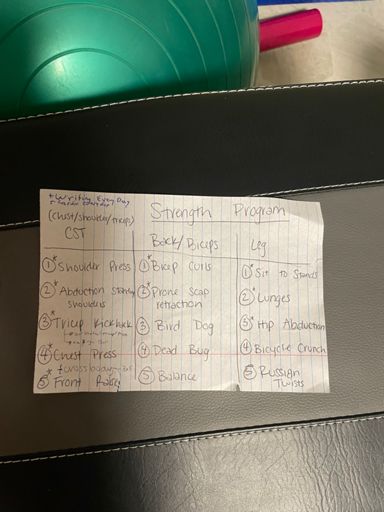 + Writing Every Day
(chest/shoulder/triceps)
Strength Program
CST
Back/Biceps
Leg
① * Shoulder Press
② * Abduction
shoulders
③ * Tricep Kickback
④ * Chest Press
⑤ * Front Raise
① * Bicep curls
② * Prone scap
retraction
③ Bird Dog
④ Dead Bug
⑤ Balance
① * Sit to Stands
② * Lunges
③ * Hip Abduction
④ Bicycle Crunch
⑤ Russian
Twists